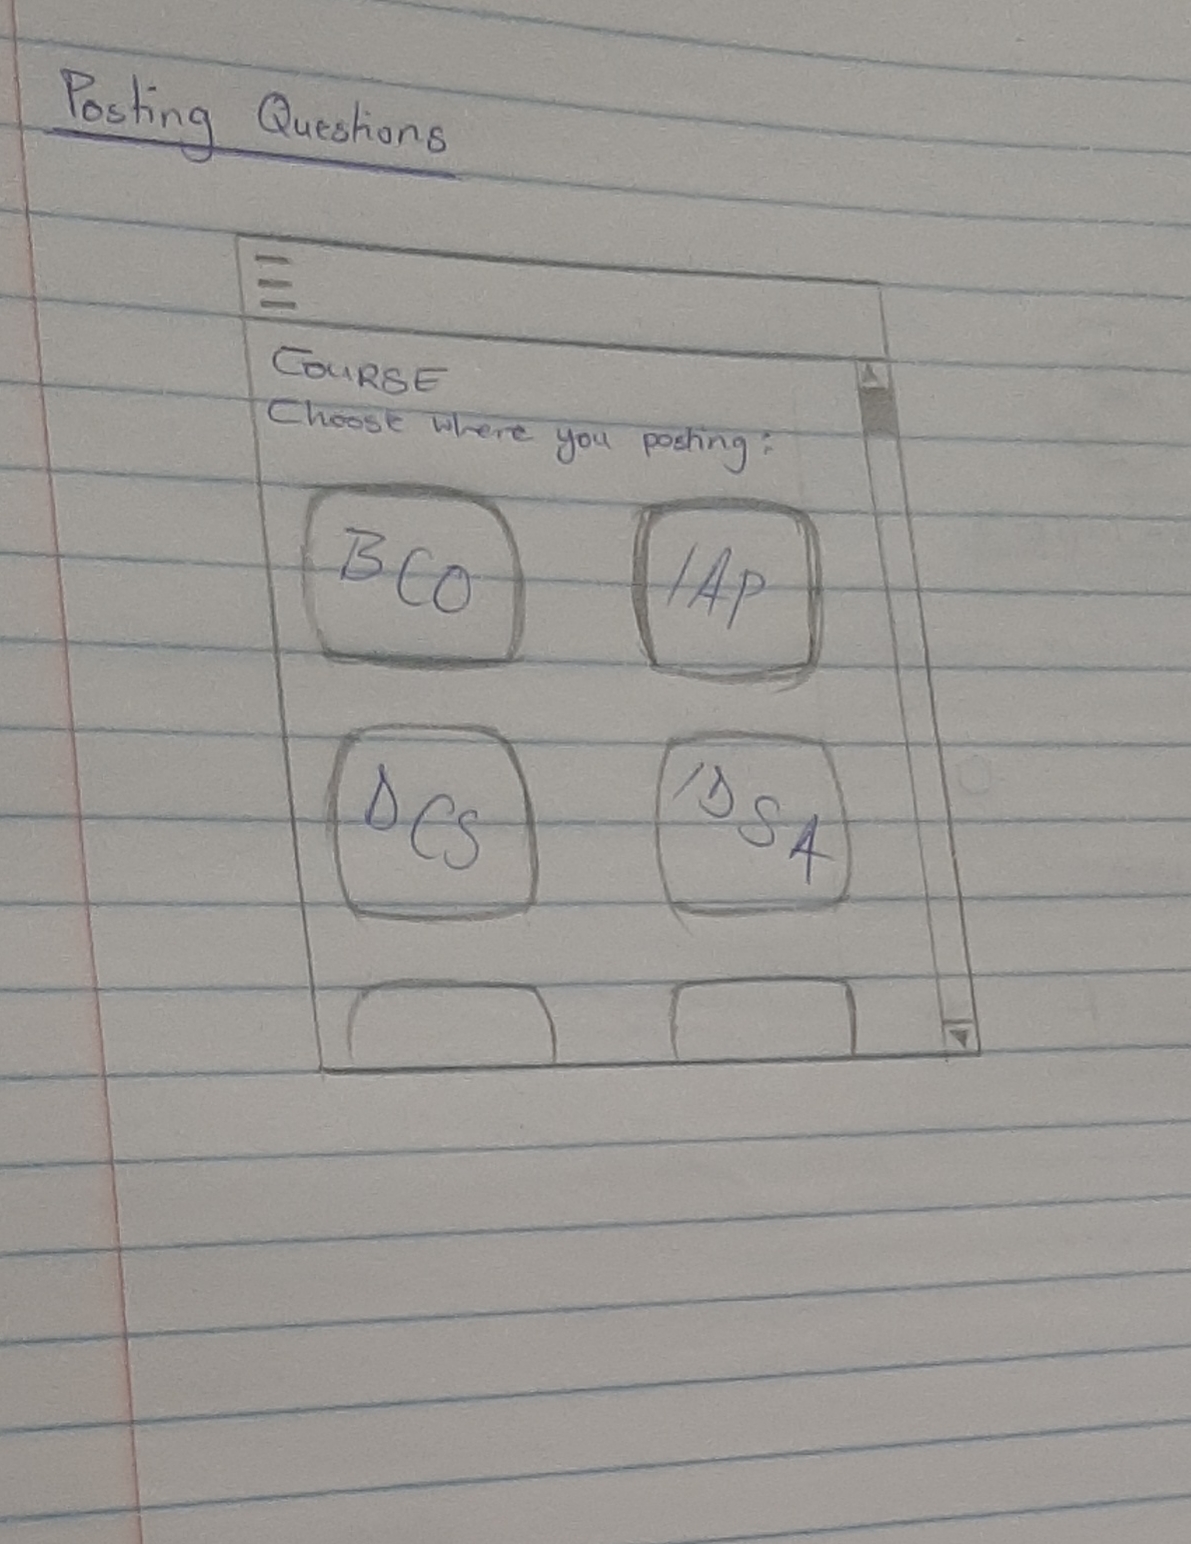 Posting Questions
COURSE
Choose where you posting:
BCO
IAP
DCS
IDSA